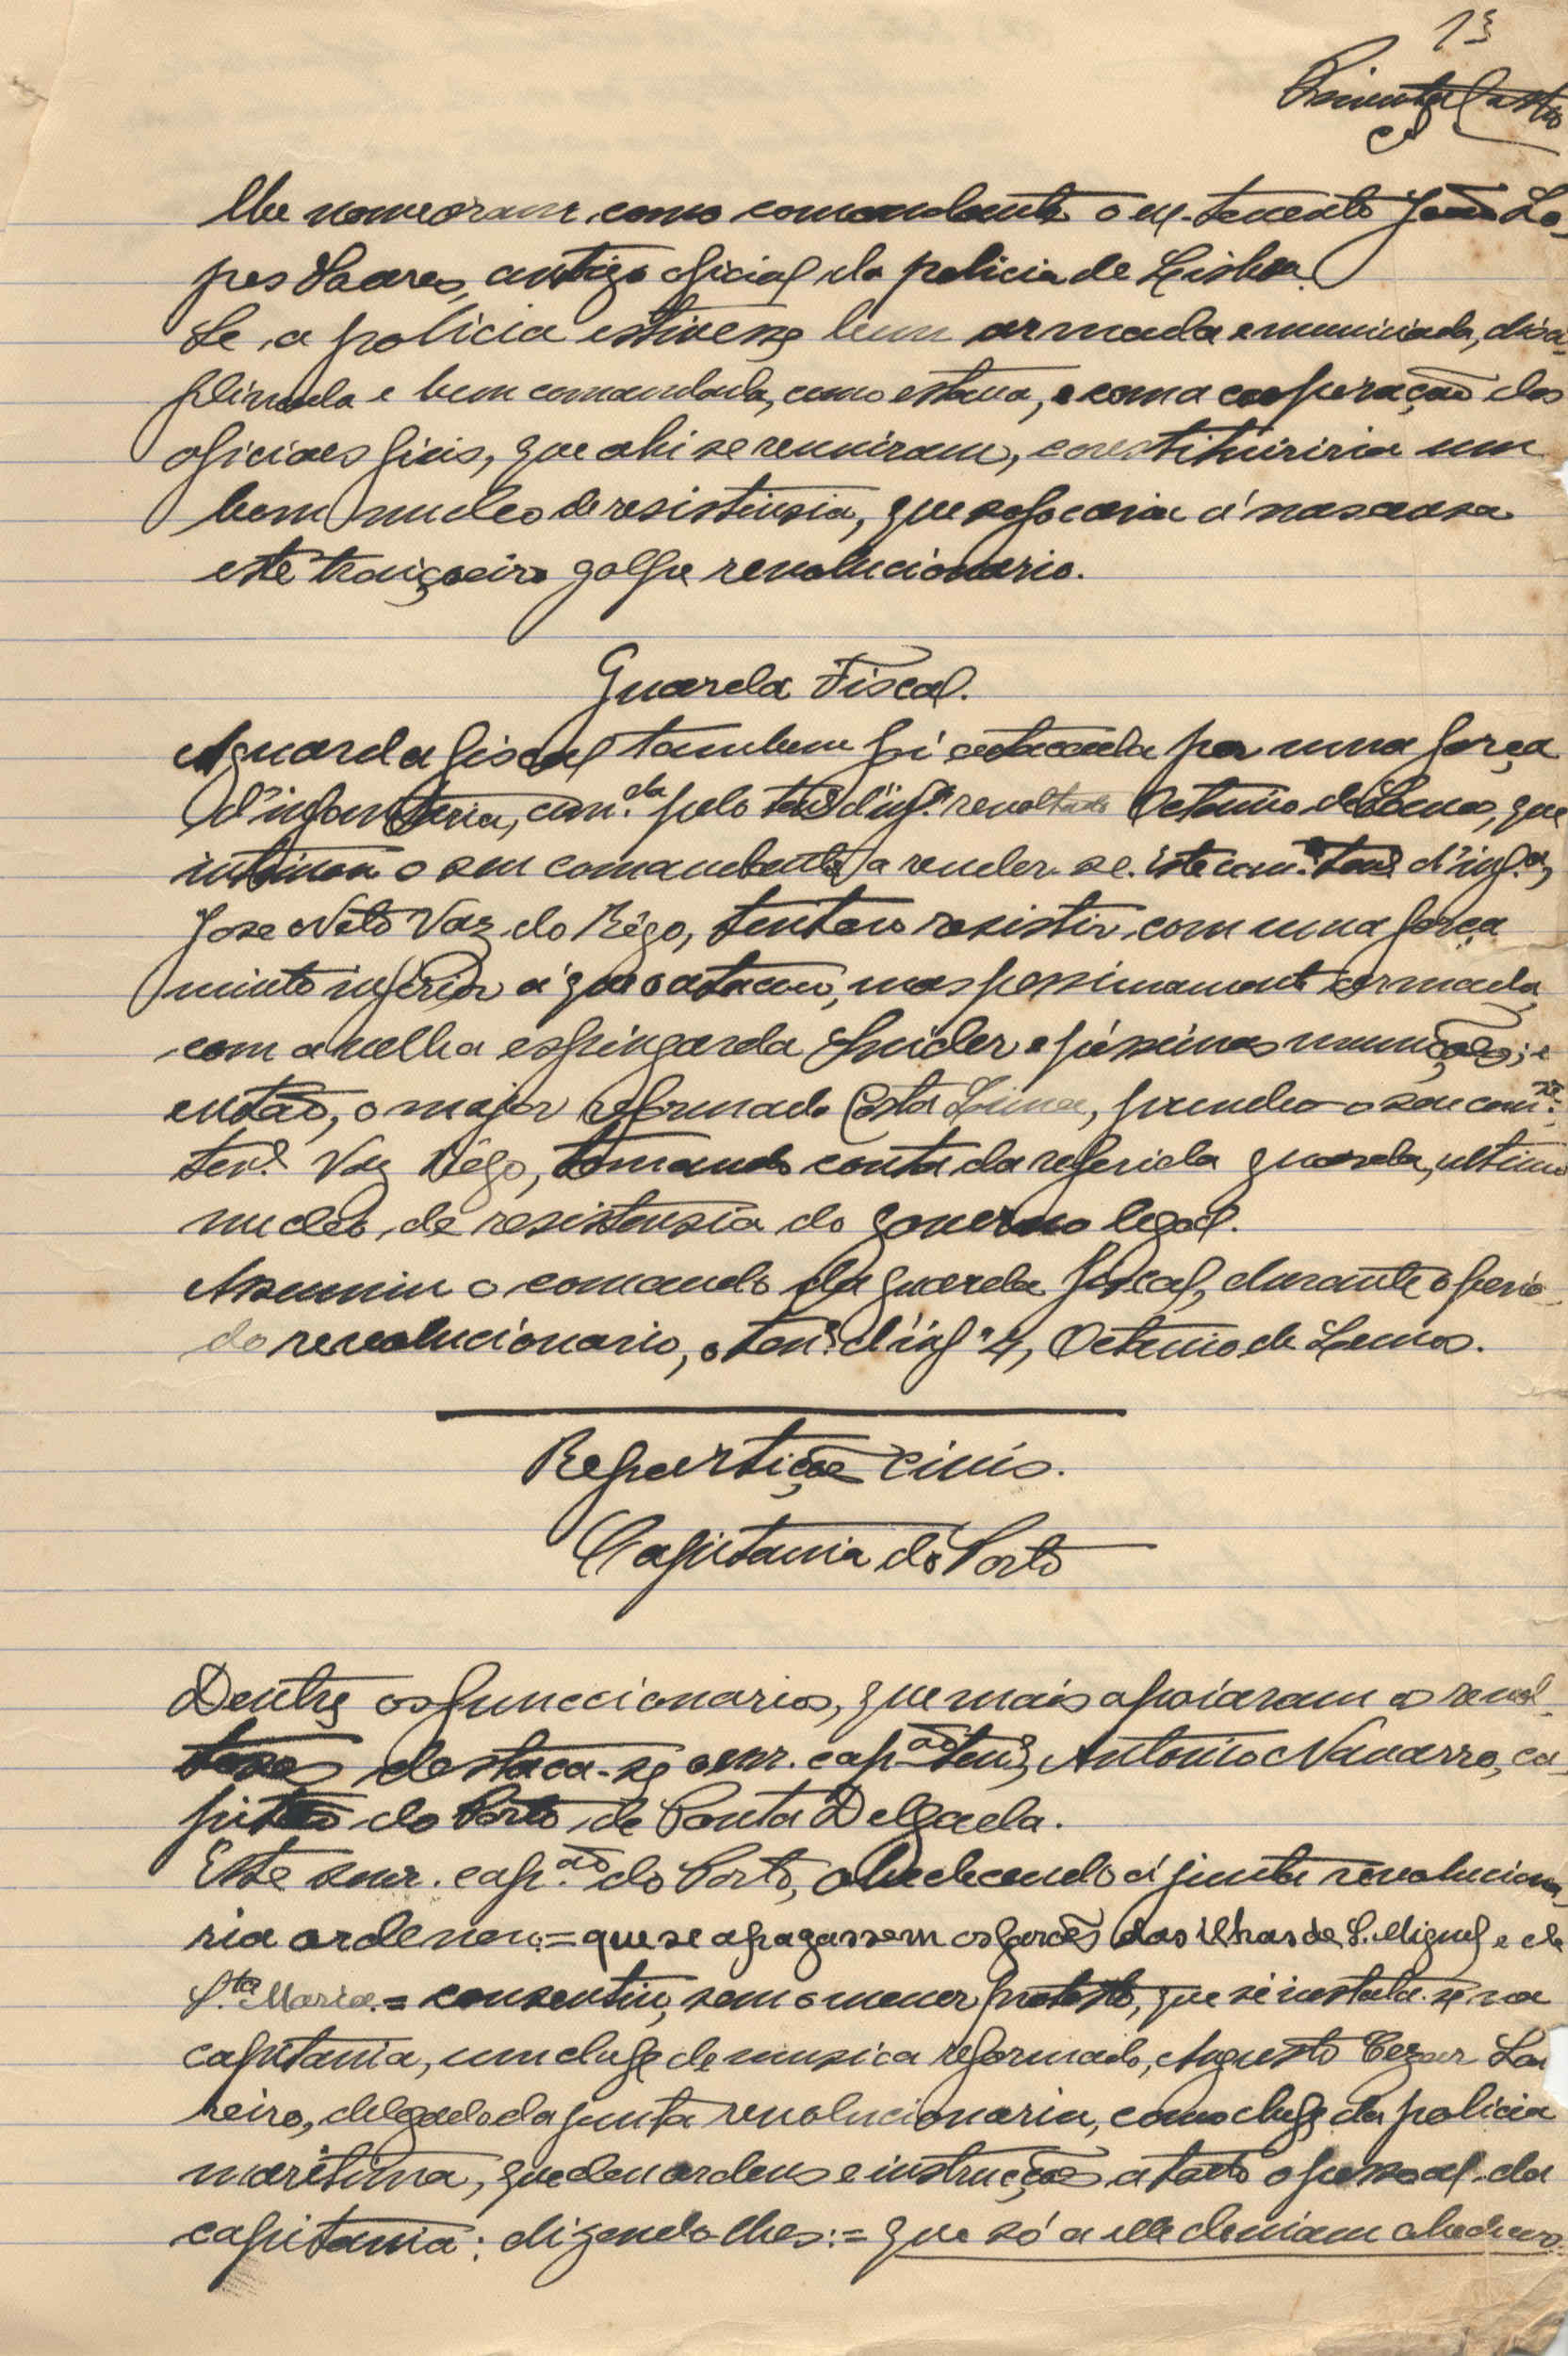 13
Pimenta Castro
lhe nomearam, como comandante o ex-tenente João Lo-
pes Soares, antigo oficial da policia de Lisboa.
Se a policia estivesse bem armada e municiada, disci-
plinada e bem comandada, como estava, e com a cooperação dos
oficiaes fieis, que ahi se reuniram, constituiriria um
bom nucleo de resistensia, que sofocaria á nascensa
este traiçoeiro golpe revolucionario.
Guarda Fiscal.
A guarda fiscal tambem foi atacada por uma força
d'infanteria, com.da pelo ten.e d'inf.a revoltado Octavio de Lemos, que
intimou o seu comandante a render-se. Este com.e ten.e d'inf.a,
Jose Neto Vaz do Rêgo, tentou resistir com uma força
muito inferior á que o atacou, mas pessimamente armada,
com a velha espingarda Snider e pessimas munições; e
então, o major reformado Costa Lima, prendeo o seu com.te
ten.e Vaz Rêgo, tomando conta da referida guarda, ultimo
nucleo de resistensia do governo legal.
Assumiu o comando da guarda fiscal, durante o perio-
do revolucionario, o ten.e d'inf.a 4, Octavio de Lemos.
Repartições civis.
Capitania do Porto
Dentre os funccionarios, que mais apoiaram os revol-
tosos destaca-se o snr. cap.ão ten.e, Antonio Navarro, ca-
pitão do Porto de Ponta Delgada.
Este snr. cap.ão do Porto, obedecendo á junta revoluciona-
ria ordenou:= que se apagassem os faroes das ilhas de S. Miguel e de
S.ta Maria.= consentiu, sem o menor protesto, que se instala-se na
capitania, um chefe de musica reformado, Augusto Cezar Lou
reiro, delegado da junta revolucionaria, como chefe da policia
maritima, que deu ordens e instrucções a todo o pessoal da
capitania; dizendo-lhes:= que só a elle deviam obediens-